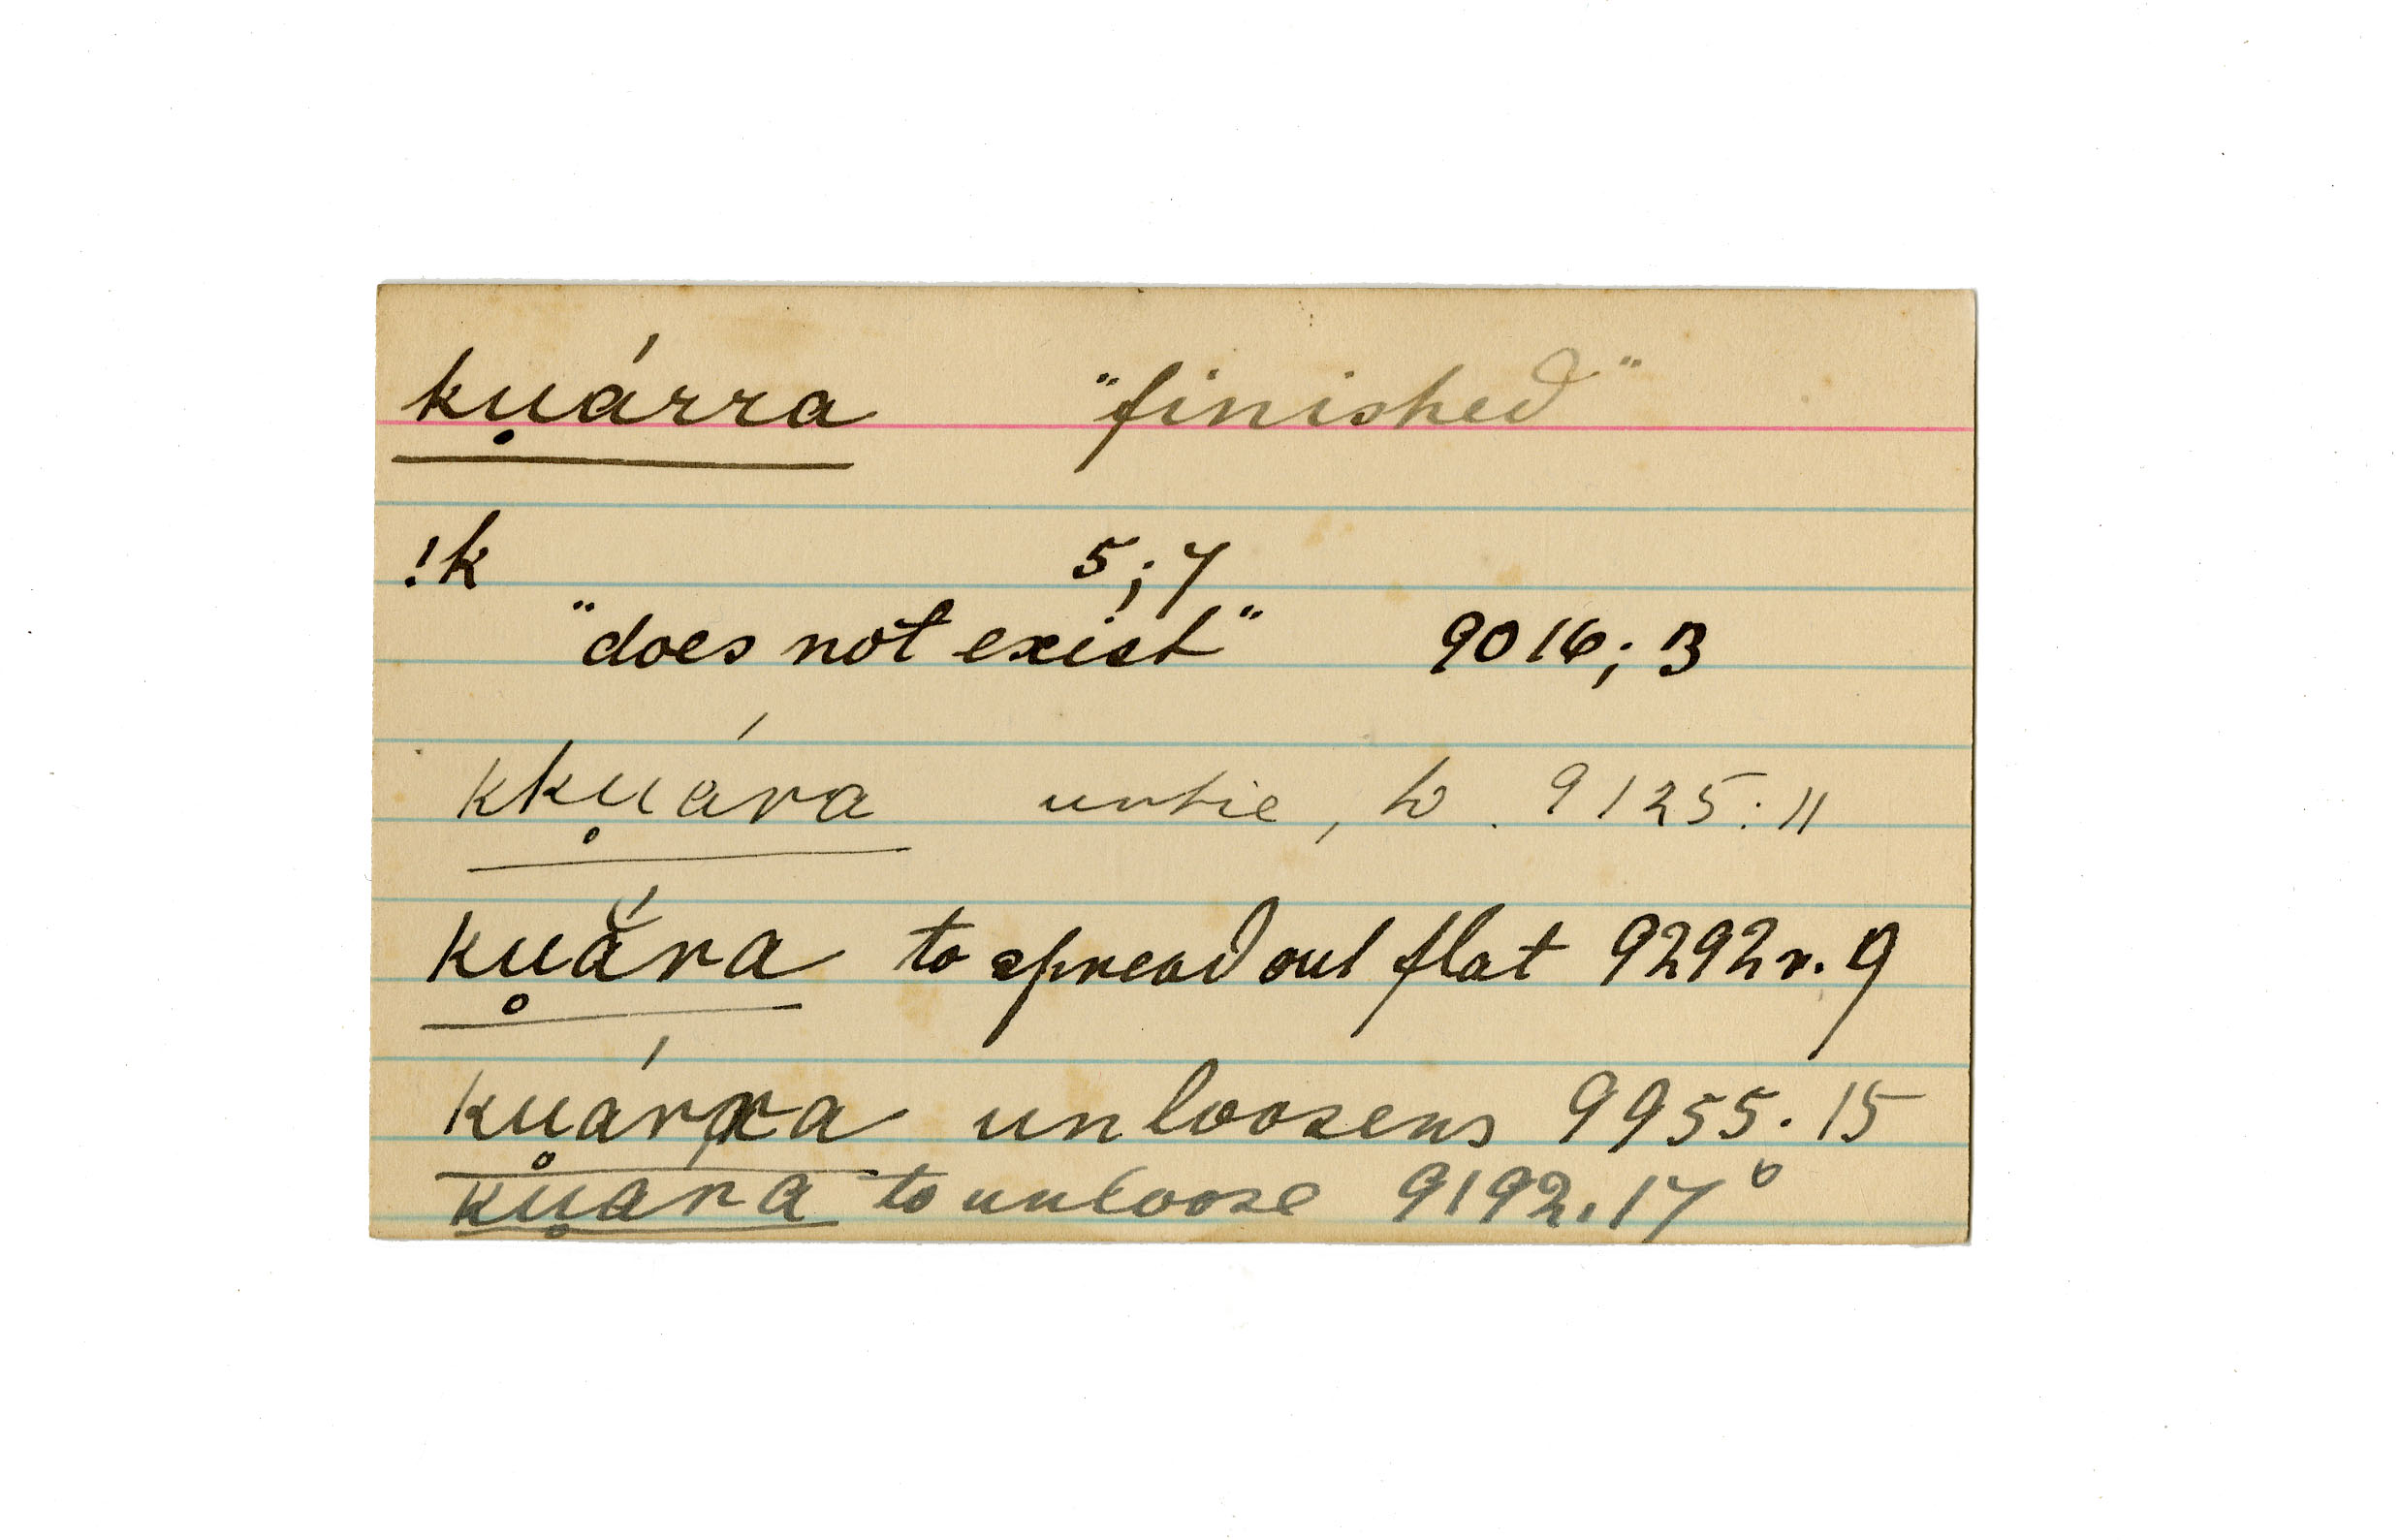 ku̥árra "finished"
!k 5;7
"does not exist" 9016; 3
kku̥ára untie, to. 9125:11
ku̥ắra to spread out flat 9292r.9
ku̥árra unloosens 9955.15
ku̥ara to unloose 9192.17°